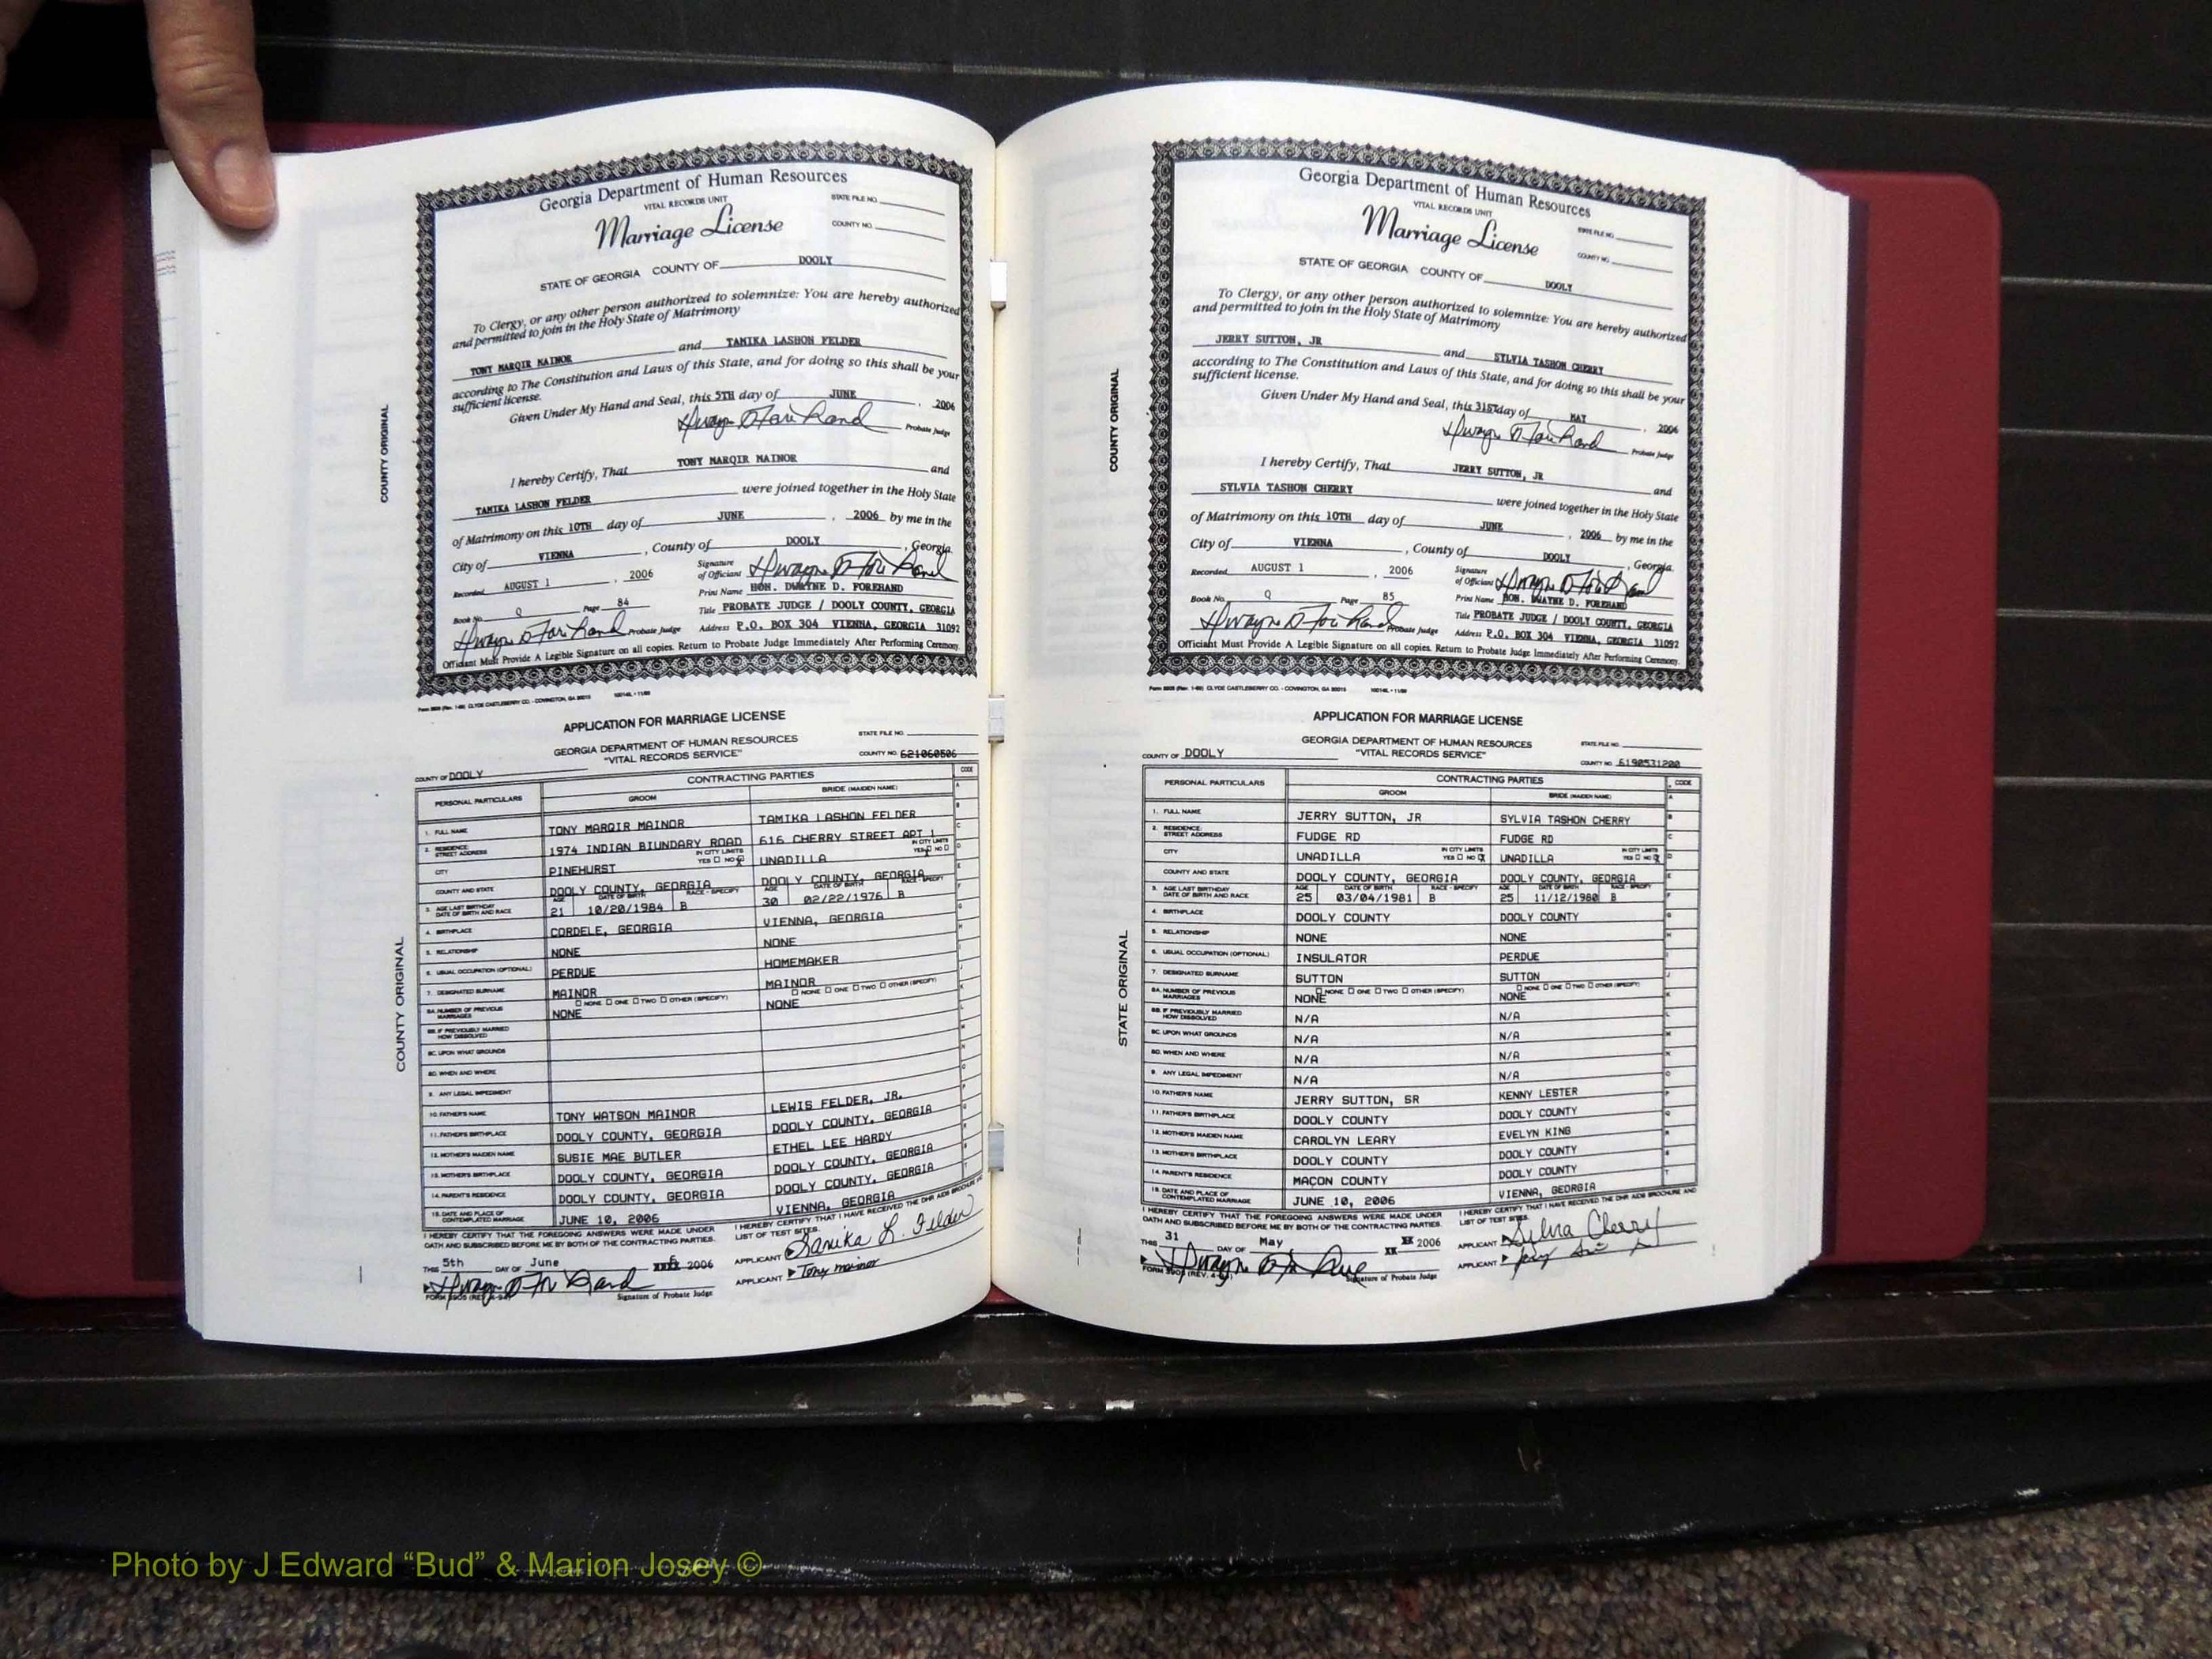 Georgia Department of Human Resources
VITAL RECORDS UNIT
STATE FILE NO.
Marriage License
COUNTY NO.
STATE OF GEORGIA COUNTY OF DOOLY
To Clergy, or any other person authorized to solemnize: You are hereby authorized
and permitted to join in the Holy State of Matrimony
TONY MARQIR MAINOR and TAMIKA LASHON FELDER
according to The Constitution and Laws of this State, and for doing so this shall be your
sufficient license.
Given Under My Hand and Seal, this 5TH day of JUNE, 2006
Probate Judge
I hereby Certify, That TONY MARQIR MAINOR and
TAMIKA LASHON FELDER were joined together in the Holy State
of Matrimony on this 10TH day of JUNE, 2006 by me in the
City of VIENNA, County of DOOLY, Georgia.
Recorded AUGUST 1, 2006 Signature of Officiant
Print Name HON. DWAYNE D. FOREHAND
Book No. Q Page 84 Title PROBATE JUDGE / DOOLY COUNTY, GEORGIA
Probate Judge Address P.O. BOX 304 VIENNA, GEORGIA 31092
Officiant Must Provide A Legible Signature on all copies. Return to Probate Judge Immediately After Performing Ceremony.
COUNTY ORIGINAL
APPLICATION FOR MARRIAGE LICENSE
GEORGIA DEPARTMENT OF HUMAN RESOURCES
STATE FILE NO.
"VITAL RECORDS SERVICE"
COUNTY NO. 621060506
COUNTY OF DOOLY
PERSONAL PARTICULARS CONTRACTING PARTIES CODE
GROOM BRIDE (MAIDEN NAME)
1. FULL NAME TONY MARQIR MAINOR TAMIKA LASHON FELDER
2. RESIDENCE: STREET ADDRESS 1974 INDIAN BIUNDARY ROAD 616 CHERRY STREET APT 1
CITY PINEHURST IN CITY LIMITS YES NO UNADILLA IN CITY LIMITS YES NO
COUNTY AND STATE DOOLY COUNTY, GEORGIA DOOLY COUNTY, GEORGIA
3. AGE LAST BIRTHDAY DATE OF BIRTH AND RACE AGE 21 DATE OF BIRTH 10/20/1984 RACE - SPECIFY B AGE 30 DATE OF BIRTH 02/22/1976 RACE - SPECIFY B
4. BIRTHPLACE CORDELE, GEORGIA VIENNA, GEORGIA
5. RELATIONSHIP NONE NONE
6. USUAL OCCUPATION (OPTIONAL) PERDUE HOMEMAKER
7. DESIGNATED SURNAME MAINOR MAINOR
8A. NUMBER OF PREVIOUS MARRIAGES NONE ONE TWO OTHER (SPECIFY) NONE NONE ONE TWO OTHER (SPECIFY) NONE
8B. IF PREVIOUSLY MARRIED HOW DISSOLVED
8C. UPON WHAT GROUNDS
8D. WHEN AND WHERE
9. ANY LEGAL IMPEDIMENT
10. FATHER'S NAME TONY WATSON MAINOR LEWIS FELDER, JR.
11. FATHER'S BIRTHPLACE DOOLY COUNTY, GEORGIA DOOLY COUNTY, GEORGIA
12. MOTHER'S MAIDEN NAME SUSIE MAE BUTLER ETHEL LEE HARDY
13. MOTHER'S BIRTHPLACE DOOLY COUNTY, GEORGIA DOOLY COUNTY, GEORGIA
14. PARENT'S RESIDENCE DOOLY COUNTY, GEORGIA DOOLY COUNTY, GEORGIA
15. DATE AND PLACE OF CONTEMPLATED MARRIAGE JUNE 10, 2006 VIENNA, GEORGIA
I HEREBY CERTIFY THAT THE FOREGOING ANSWERS WERE MADE UNDER
OATH AND SUBSCRIBED BEFORE ME BY BOTH OF THE CONTRACTING PARTIES.
I HEREBY CERTIFY THAT I HAVE RECEIVED THE DHR AIDS BROCHURE AND
LIST OF TEST SITES.
THIS 5th DAY OF June 2006
APPLICANT Tamika L. Felder
APPLICANT Tony mainor
Signature of Probate Judge
COUNTY ORIGINAL
Georgia Department of Human Resources
VITAL RECORDS UNIT
STATE FILE NO.
Marriage License
COUNTY NO.
STATE OF GEORGIA COUNTY OF DOOLY
To Clergy, or any other person authorized to solemnize: You are hereby authorized
and permitted to join in the Holy State of Matrimony
JERRY SUTTON, JR and SYLVIA TASHON CHERRY
according to The Constitution and Laws of this State, and for doing so this shall be your
sufficient license.
Given Under My Hand and Seal, this 31ST day of MAY, 2006
Probate Judge
I hereby Certify, That JERRY SUTTON, JR and
SYLVIA TASHON CHERRY were joined together in the Holy State
of Matrimony on this 10TH day of JUNE, 2006 by me in the
City of VIENNA, County of DOOLY, Georgia.
Recorded AUGUST 1, 2006 Signature of Officiant
Print Name HON. DWAYNE D. FOREHAND
Book No. Q Page 85 Title PROBATE JUDGE / DOOLY COUNTY, GEORGIA
Probate Judge Address P.O. BOX 304 VIENNA, GEORGIA 31092
Officiant Must Provide A Legible Signature on all copies. Return to Probate Judge Immediately After Performing Ceremony.
COUNTY ORIGINAL
APPLICATION FOR MARRIAGE LICENSE
GEORGIA DEPARTMENT OF HUMAN RESOURCES
STATE FILE NO.
"VITAL RECORDS SERVICE"
COUNTY NO. 6190531200
COUNTY OF DOOLY
PERSONAL PARTICULARS CONTRACTING PARTIES CODE
GROOM BRIDE (MAIDEN NAME)
1. FULL NAME JERRY SUTTON, JR SYLVIA TASHON CHERRY
2. RESIDENCE: STREET ADDRESS FUDGE RD FUDGE RD
CITY UNADILLA IN CITY LIMITS YES NO UNADILLA IN CITY LIMITS YES NO
COUNTY AND STATE DOOLY COUNTY, GEORGIA DOOLY COUNTY, GEORGIA
3. AGE LAST BIRTHDAY DATE OF BIRTH AND RACE AGE 25 DATE OF BIRTH 03/04/1981 RACE - SPECIFY B AGE 25 DATE OF BIRTH 11/12/1980 RACE - SPECIFY B
4. BIRTHPLACE DOOLY COUNTY DOOLY COUNTY
5. RELATIONSHIP NONE NONE
6. USUAL OCCUPATION (OPTIONAL) INSULATOR PERDUE
7. DESIGNATED SURNAME SUTTON SUTTON
8A. NUMBER OF PREVIOUS MARRIAGES NONE ONE TWO OTHER (SPECIFY) NONE NONE ONE TWO OTHER (SPECIFY) NONE
8B. IF PREVIOUSLY MARRIED HOW DISSOLVED N/A N/A
8C. UPON WHAT GROUNDS N/A N/A
8D. WHEN AND WHERE N/A N/A
9. ANY LEGAL IMPEDIMENT N/A N/A
10. FATHER'S NAME JERRY SUTTON, SR KENNY LESTER
11. FATHER'S BIRTHPLACE DOOLY COUNTY DOOLY COUNTY
12. MOTHER'S MAIDEN NAME CAROLYN LEARY EVELYN KING
13. MOTHER'S BIRTHPLACE DOOLY COUNTY DOOLY COUNTY
14. PARENT'S RESIDENCE MACON COUNTY DOOLY COUNTY
15. DATE AND PLACE OF CONTEMPLATED MARRIAGE JUNE 10, 2006 VIENNA, GEORGIA
I HEREBY CERTIFY THAT THE FOREGOING ANSWERS WERE MADE UNDER
OATH AND SUBSCRIBED BEFORE ME BY BOTH OF THE CONTRACTING PARTIES.
I HEREBY CERTIFY THAT I HAVE RECEIVED THE DHR AIDS BROCHURE AND
LIST OF TEST SITES.
THIS 31 DAY OF May 2006
APPLICANT Sylvia Cherry
APPLICANT
Signature of Probate Judge
STATE ORIGINAL
Photo by J Edward “Bud” & Marion Josey ©